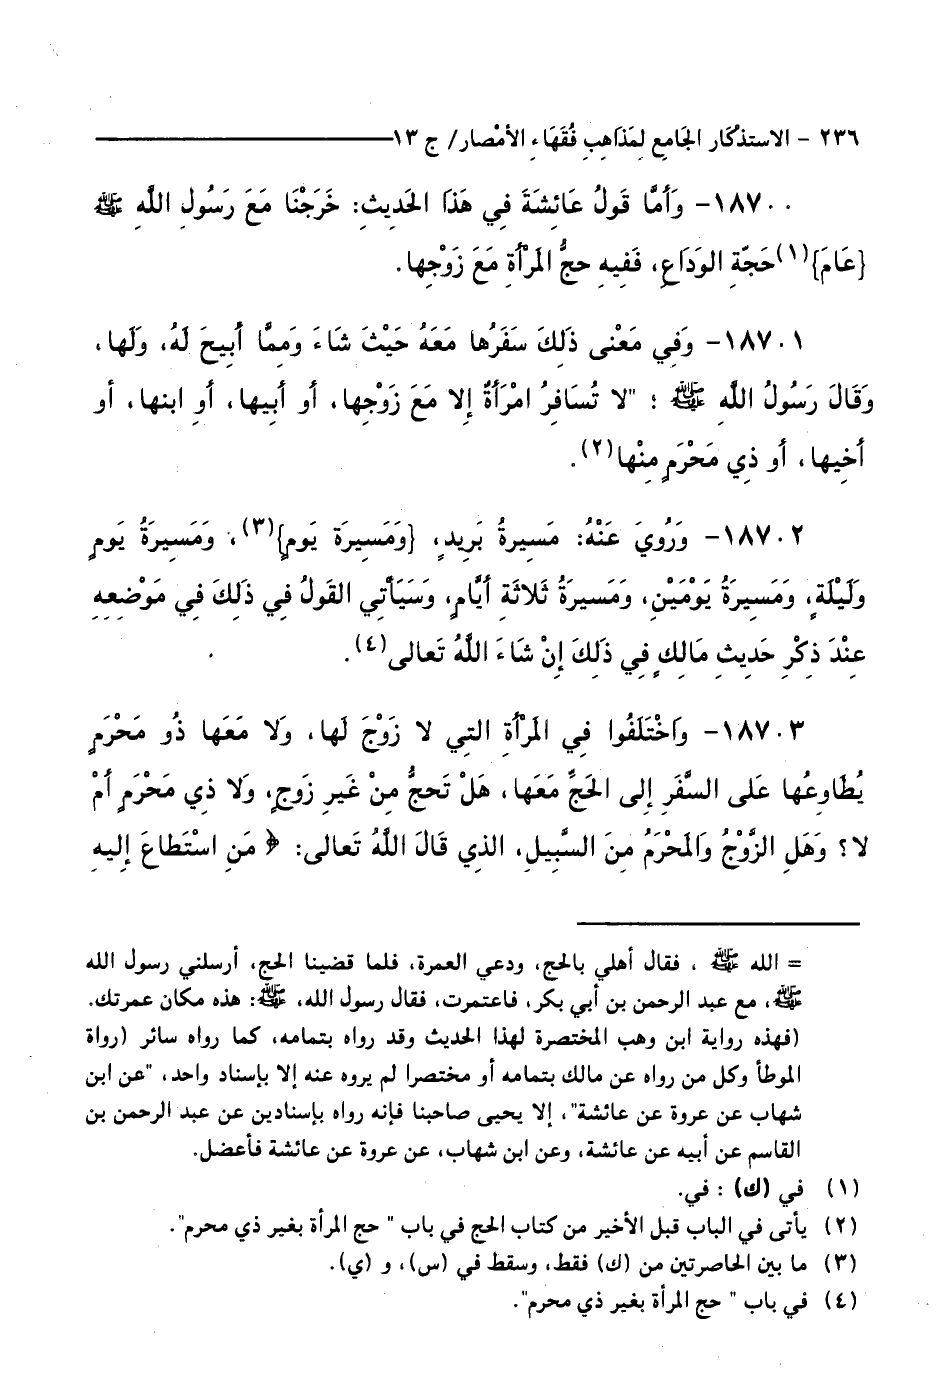 ٢٣٦ - الاستذكار الجامع لمذاهب فقهاء الأمصار / ج ١٣
١٨٧٠٠- وَأَمَّا قَولُ عَائِشَةَ فِي هَذَا الحَديثِ: خَرَجْنَا مَعَ رَسُولِ اللَّهِ ﷺ
{عَامَ}(١)حَجَّةِ الوَدَاعِ، فَفِيهِ حجُّ المَرْأةِ مَعَ زَوْجِها.
١٨٧٠١- وَفِي مَعْنى ذَلِكَ سَفَرُها مَعَهُ حَيْثُ شَاءَ وَمِمَّا أُبِيحَ لَهُ، وَلَها،
وَقَالَ رَسُولُ اللَّهِ ﷺ ؛ "لا تُسَافِرُ امْرَأةٌ إلا مَعَ زَوْجِها، أو أبيها، أو ابنها، أو
أخِيها، أو ذِي مَحْرَمٍ مِنْها(٢).
١٨٧٠٢- وَرُوِيَ عَنْهُ: مَسِيرةُ بَرِيدٍ، {وَمَسِيرَة يَومٍ}(٣)، وَمَسِيرَةُ يَومٍ
وَلَيْلَةٍ، وَمَسِيرَةُ يَوْمَيْنِ، وَمَسِيرَةُ ثَلاثَةِ أيَّامٍ، وَسَيَأتِي القَولُ فِي ذَلِكَ فِي مَوْضعِهِ
عِنْدَ ذِكْرِ حَدِيثِ مَالِكٍ فِي ذَلِكَ إِنْ شَاءَ اللَّهُ تَعالى(٤).
١٨٧٠٣- وَاخْتَلَفُوا فِي المَرْأةِ التِي لا زَوْجَ لَها، وَلا مَعَها ذُو مَحْرَمٍ
يُطَاوِعُها عَلى السَّفَرِ إلى الحَجِّ مَعَها، هَلْ تَحجُّ مِنْ غَيرِ زَوجٍ، وَلا ذِي مَحْرَمٍ أمْ
لا؟ وَهَلِ الزَّوْجُ وَالمَحْرَمُ مِنَ السَّبِيلِ، الذي قَالَ اللَّهُ تَعالى: ﴿ مَنِ اسْتَطاعَ إليه
= الله ﷺ ، فقال أهلي بالحج، ودعي العمرة، فلما قضينا الحج، أرسلني رسول الله
ﷺ، مع عبد الرحمن بن أبي بكر، فاعتمرت، فقال رسول الله، ﷺ: هذه مكان عمرتك.
(فهذه رواية ابن وهب المختصرة لهذا الحديث وقد رواه بتمامه، كما رواه سائر (رواة
الموطأ وكل من رواه عن مالك بتمامه أو مختصرا لم يروه عنه إلا بإسناد واحد، "عن ابن
شهاب عن عروة عن عائشة"، إلا يحيى صاحبنا فإنه رواه بإسنادين عن عبد الرحمن بن
القاسم عن أبيه عن عائشة، وعن ابن شهاب، عن عروة عن عائشة فأعضل.
(١) في (ك) : في.
(٢) يأتى في الباب قبل الأخير من كتاب الحج في باب " حج المرأة بغير ذي محرم".
(٣) ما بين الحاصرتين من (ك) فقط، وسقط في (س)، و (ي).
(٤) في باب " حج المرأة بغير ذي محرم".